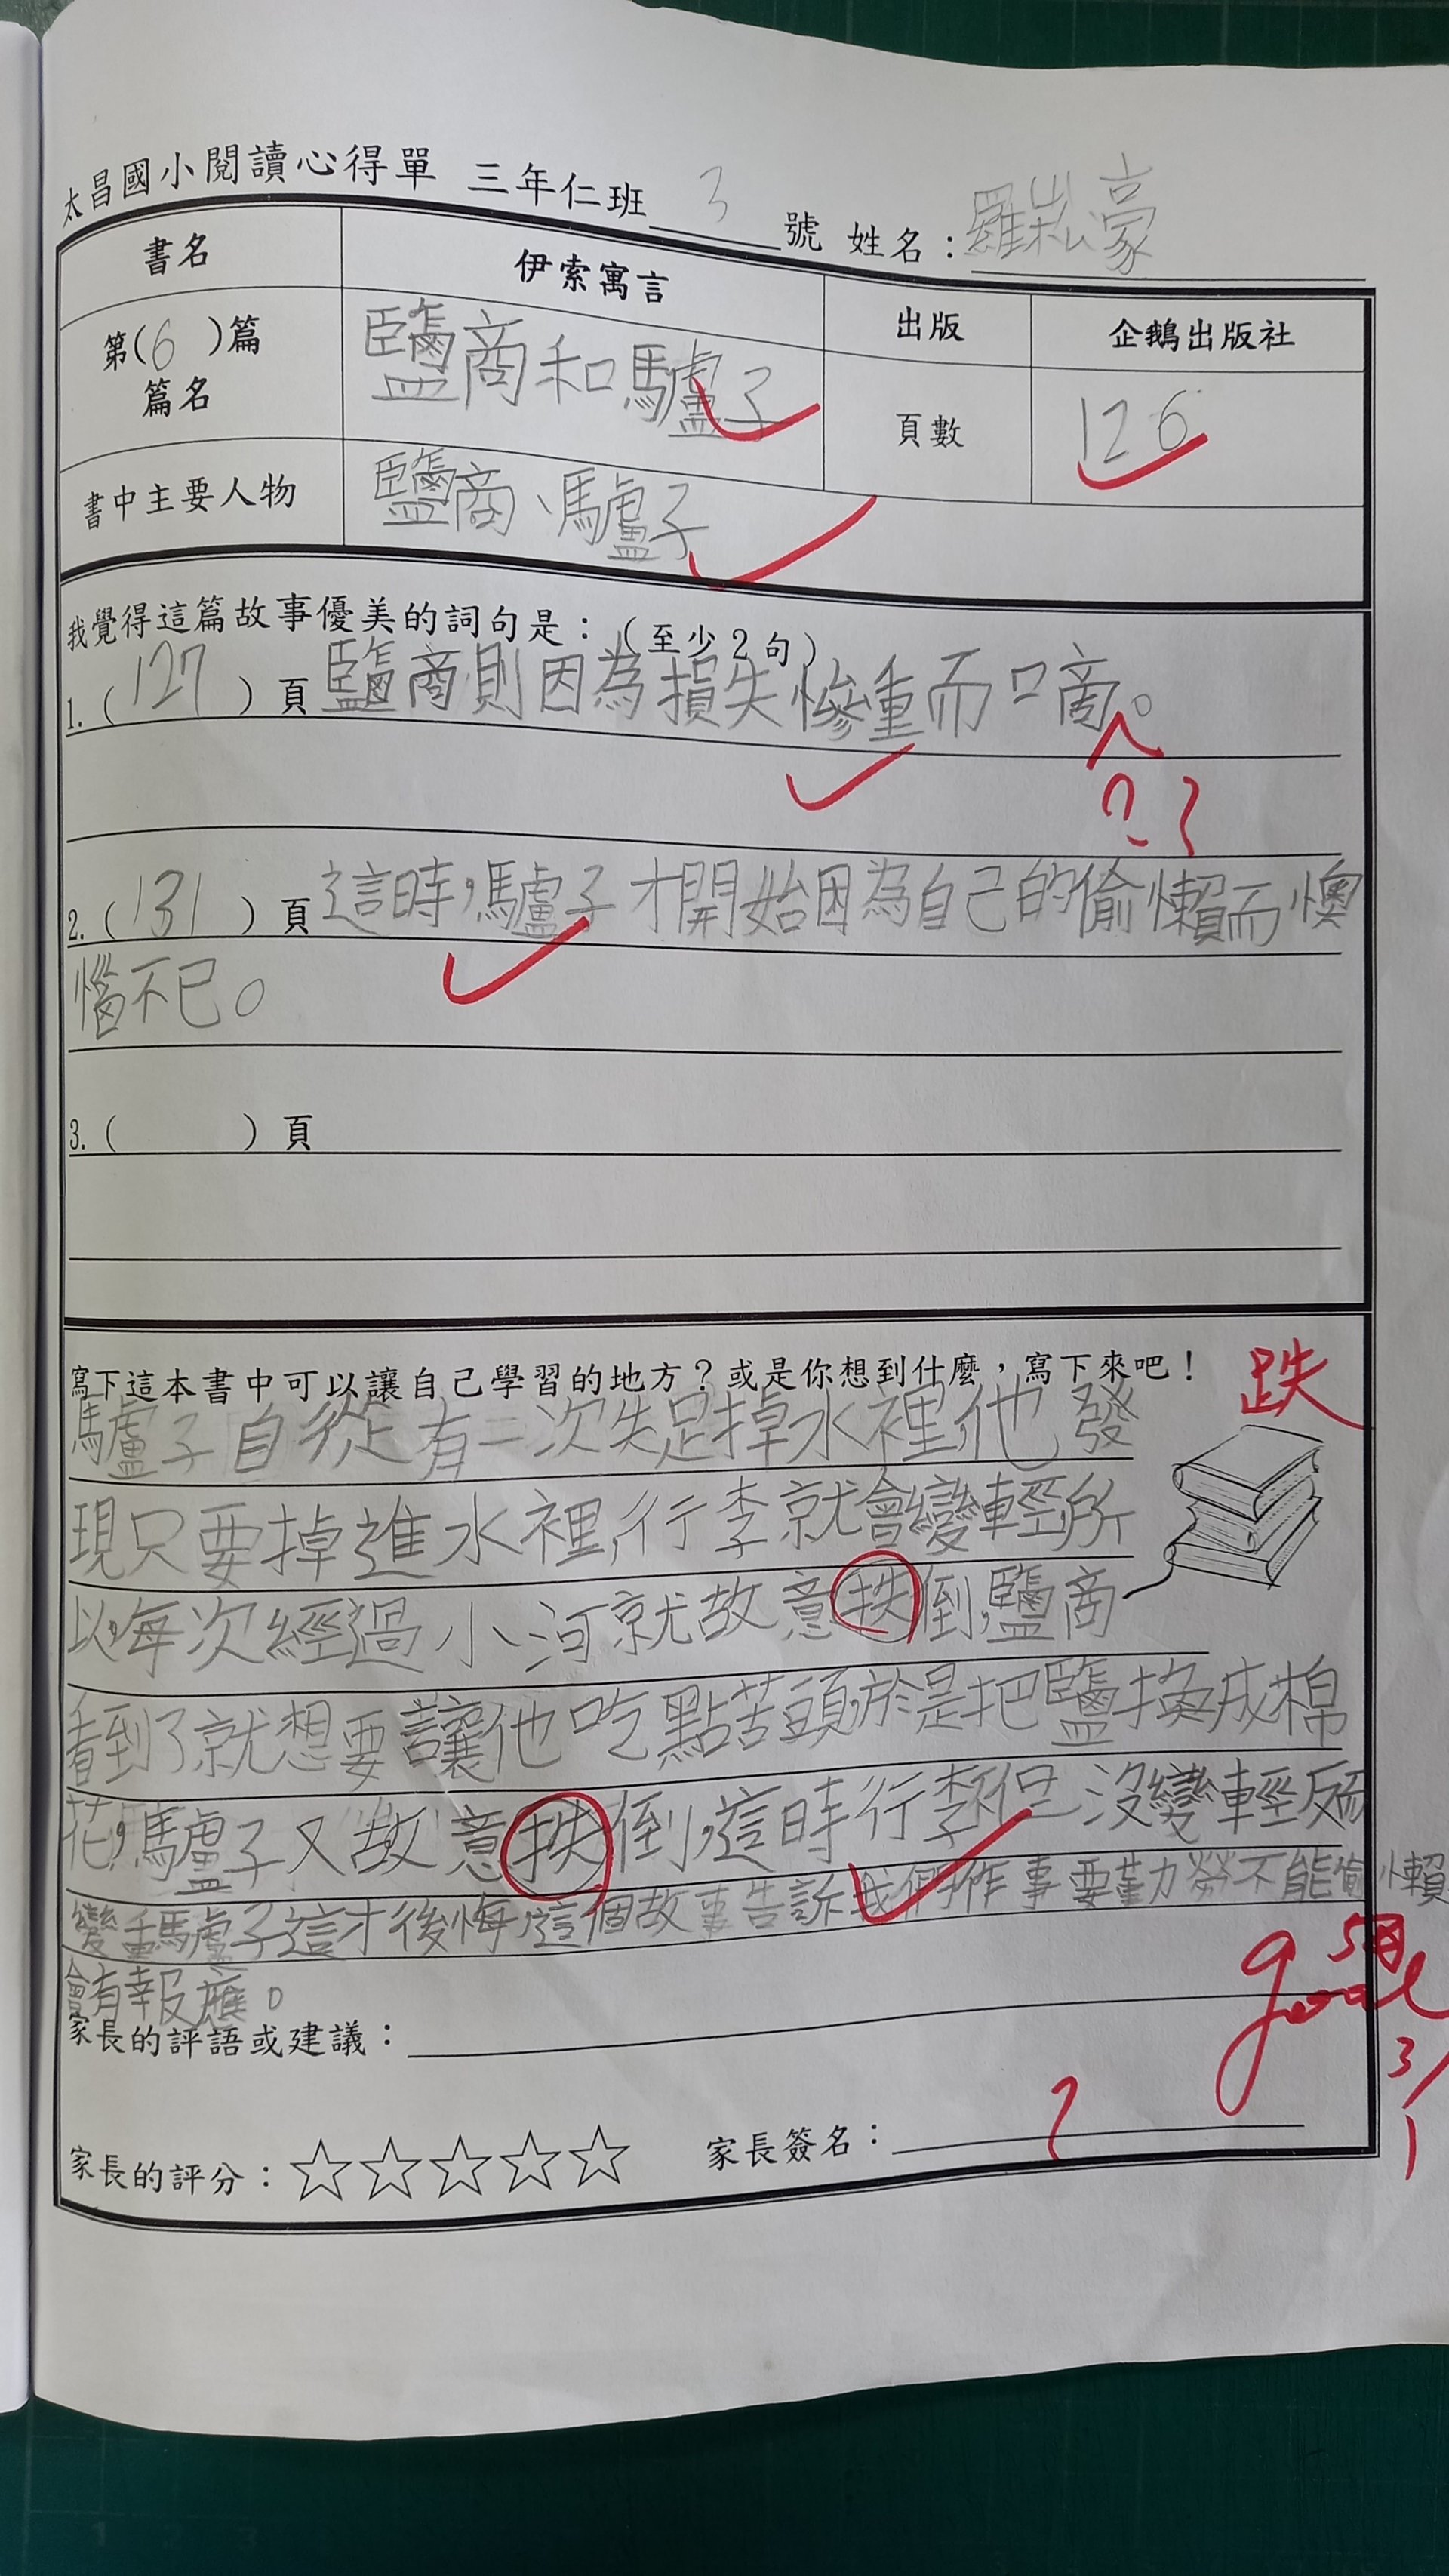 太昌國小閱讀心得單 三年仁班 3 號 姓名：羅崧豪
書名 伊索寓言 出版 企鵝出版社
第(6)篇 篇名 鹽商和驢子 頁數 126
書中主要人物 鹽商、驢子
我覺得這篇故事優美的詞句是：(至少2句)
1.(127)頁 鹽商則因為損失慘重而口啇。
??
2.(131)頁 這時，驢子才開始因為自己的偷懶而懊
惱不已。
3.( )頁
寫下這本書中可以讓自己學習的地方？或是你想到什麼，寫下來吧！
跌
驢子自從有一次失足掉水裡他發
現只要掉進水裡，行李就會變輕所
以每次經過小河就故意抶倒，鹽商
看到了就想要讓他吃點苦頭，於是把鹽換成棉
花，驢子又故意抶倒，這時行李不但沒變輕反而
變重驢子這才後悔，這個故事告訴我們作事要勤勞不能偷懶
會有報應。
good
3/1
家長的評語或建議：
家長的評分：☆☆☆☆☆ 家長簽名： ?